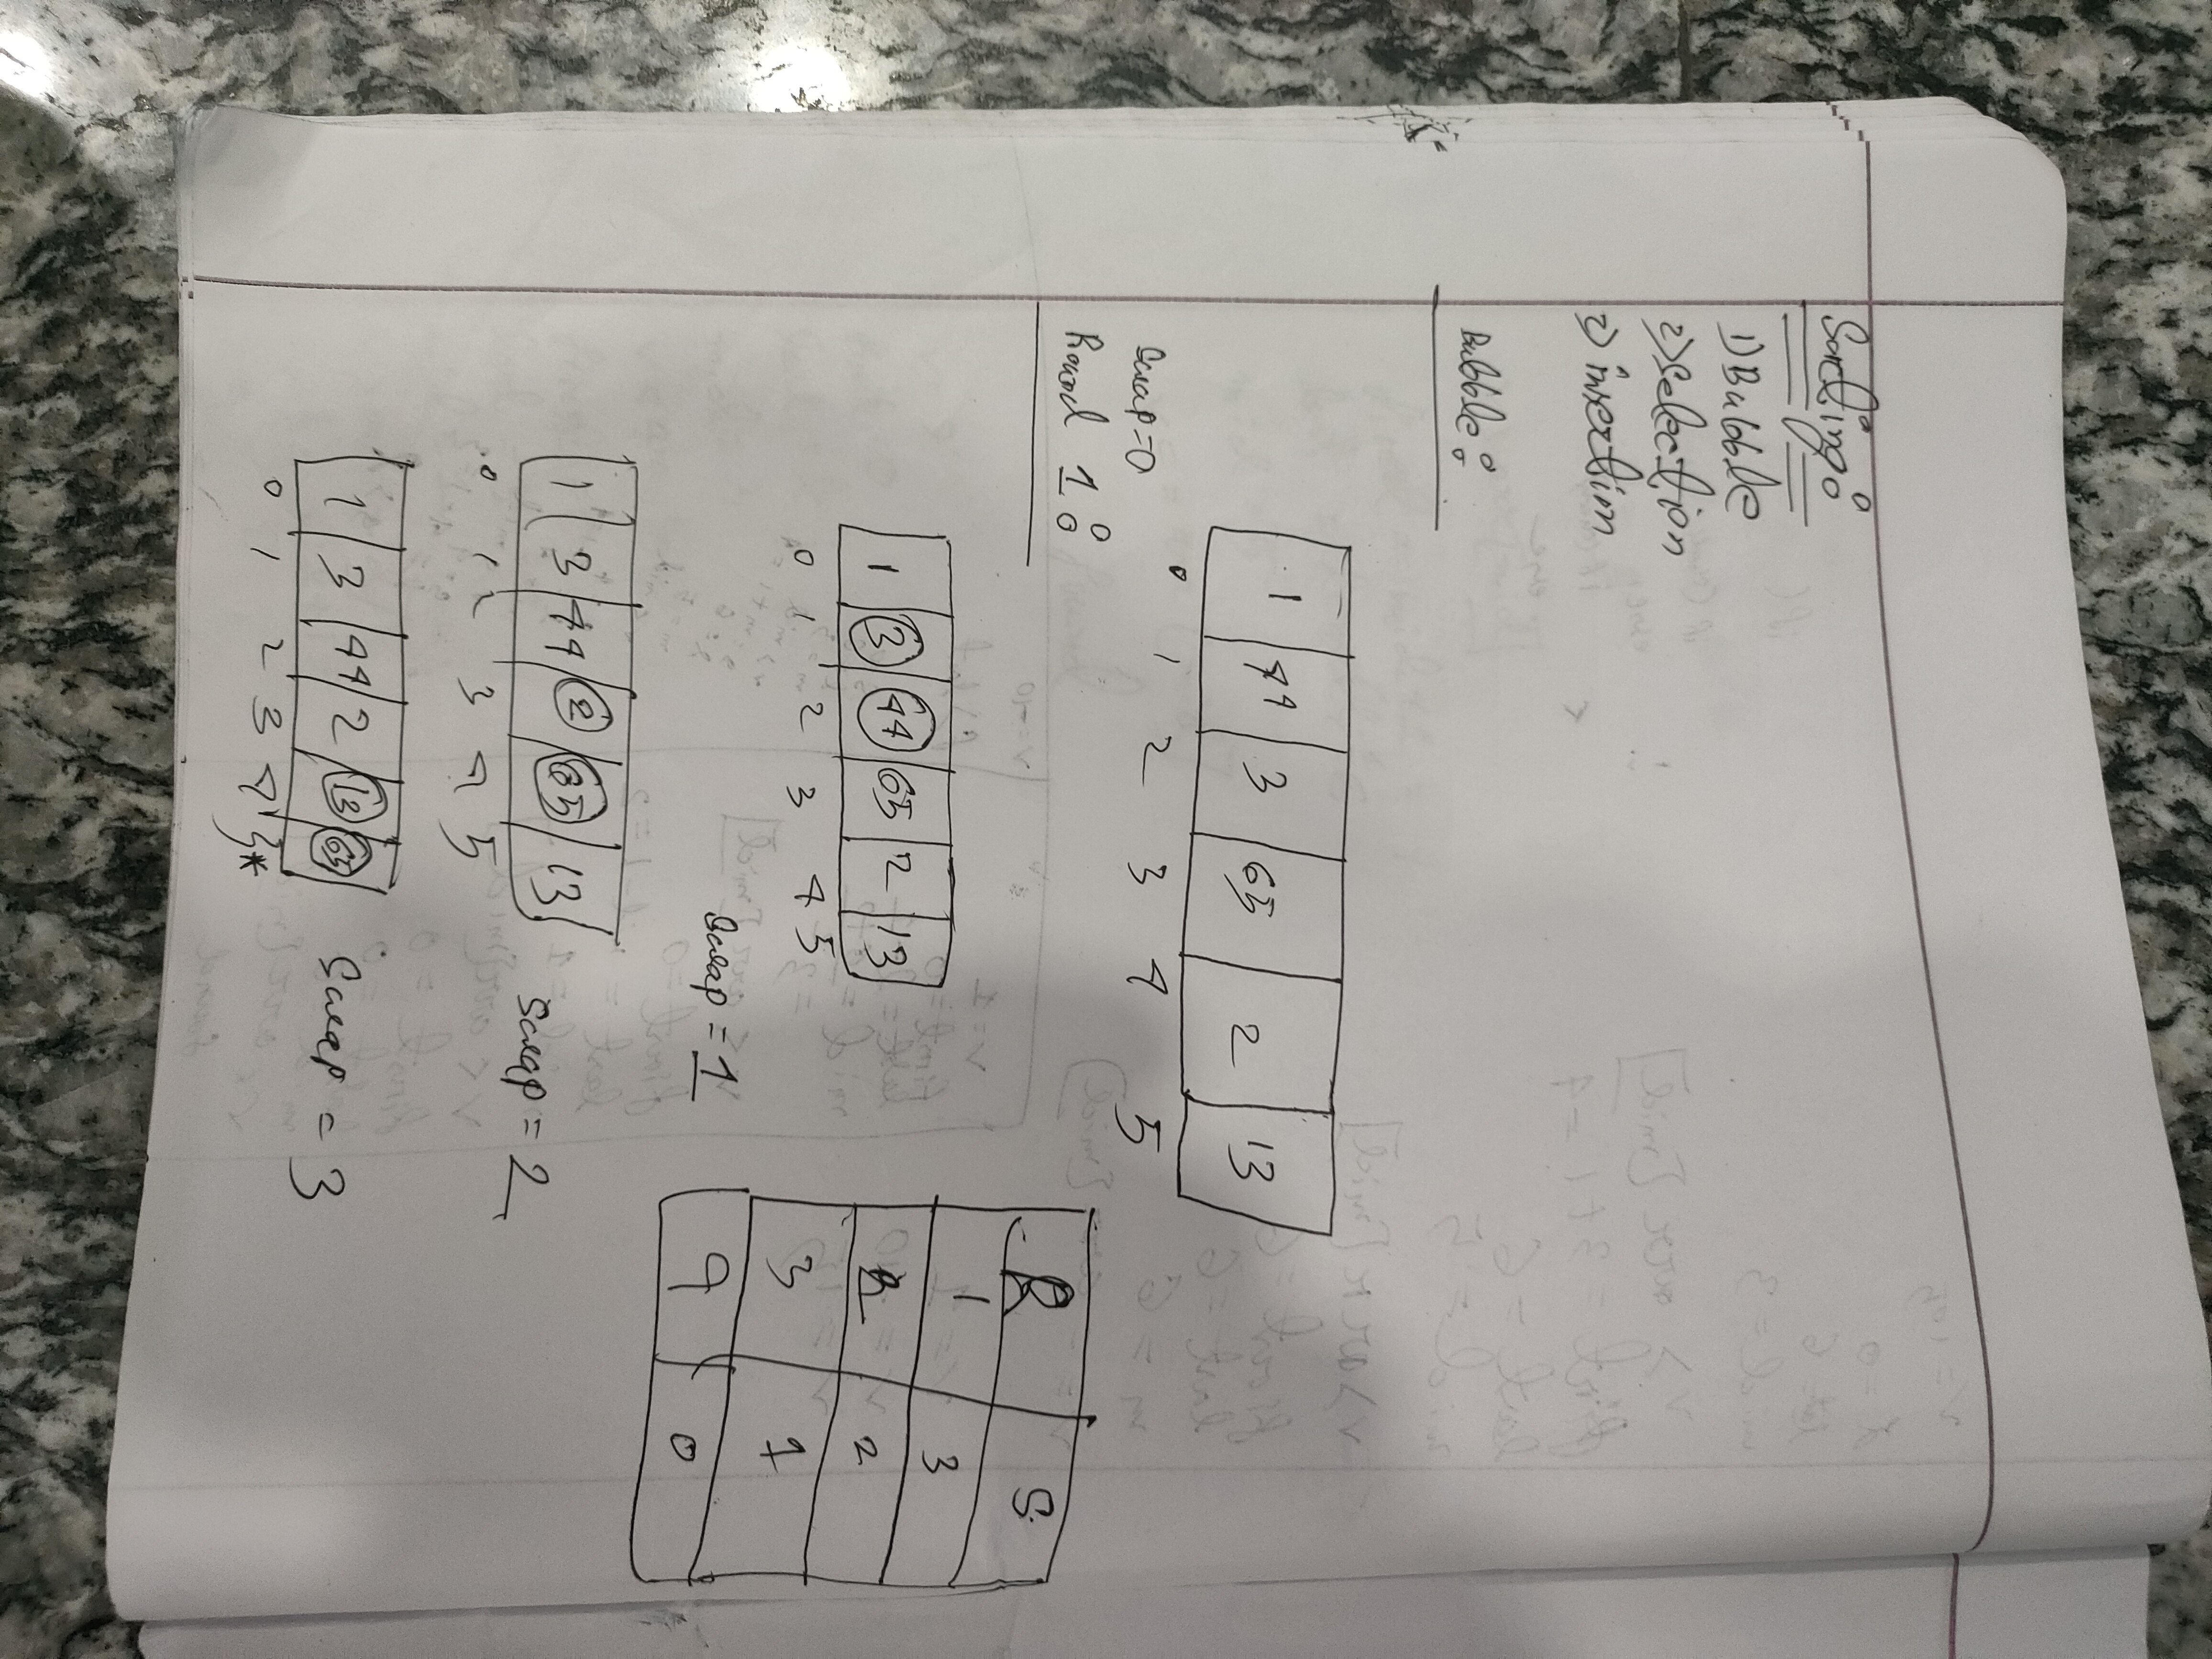 Sorting:
1) Bubble
2) Selection
3) insertion
Bubble:
1 44 3 65 2 13
0 1 2 3 4 5
Swap=0
Round 1:
R S
1 3
2 2
3 1
4 0
1 3 44 65 2 13
0 1 2 3 4 5
Swap = 1
1 3 44 2 65 13
0 1 2 3 4 5
Swap = 2
1 3 44 2 13 65
0 1 2 3 4 5*
Swap = 3